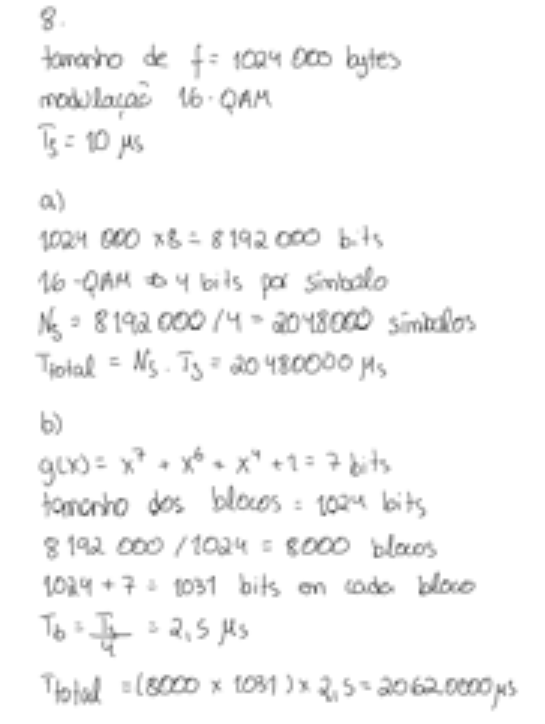 8.
tamanho de f = 1024 000 bytes
modulação 16-QAM
Ts = 10 μs
a)
1024 000 x8 = 8192 000 bits
16-QAM ⇒ 4 bits por símbolo
Ns = 8192 000 / 4 = 2048000 símbolos
Ttotal = Ns . Ts = 20480000 μs
b)
g(x) = x⁷ + x⁶ + x⁴ + 1 = 7 bits
tamanho dos blocos = 1024 bits
8192 000 / 1024 = 8000 blocos
1024 + 7 = 1031 bits em cada bloco
Tb = Ts/4 = 2,5 μs
Ttotal = (8000 x 1031) x 2,5 = 20620000 μs